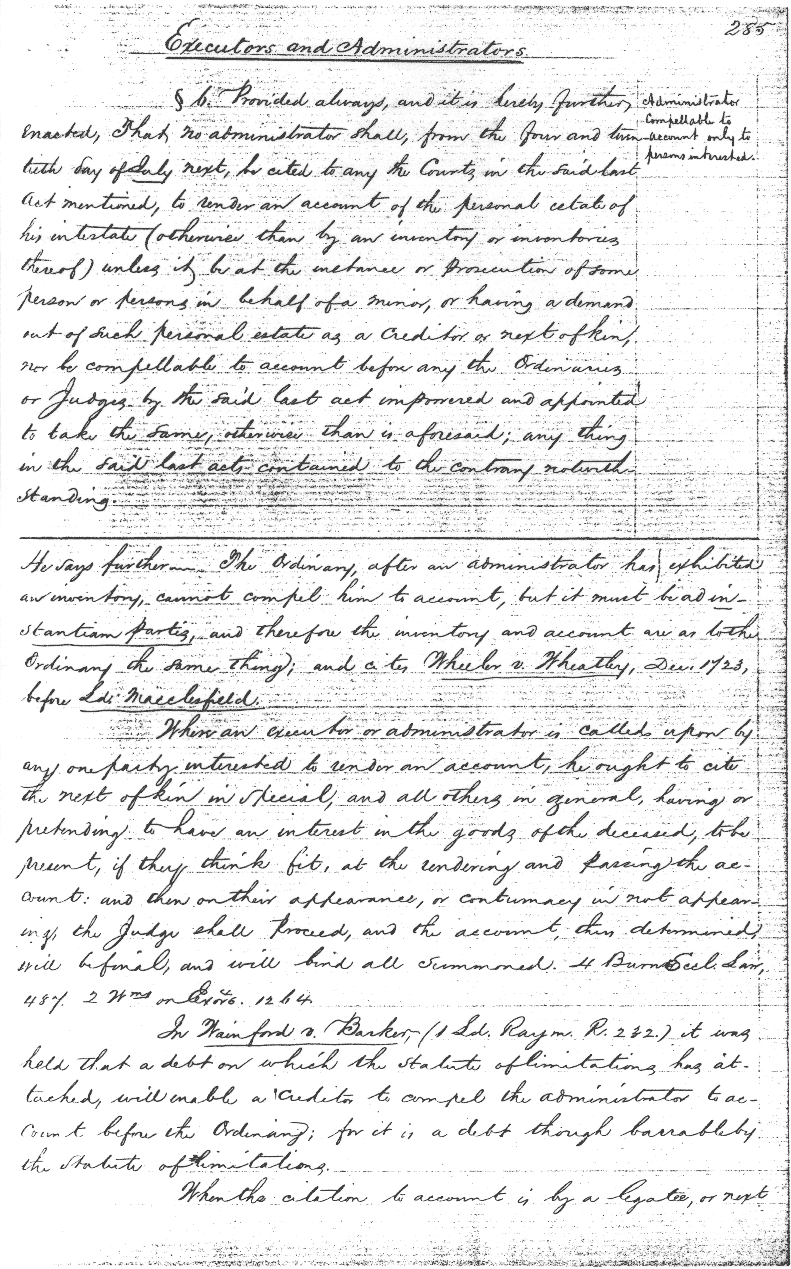 285
Executors and Administrators.
§ 6. Provided always, and it is hereby further
enacted, That no administrator shall, from the four and twen-
tieth day of July next, be cited to any the Courts in the said last
Act mentioned, to render an account of the personal estate of
his intestate (otherwise than by an inventory or inventories
thereof) unless it be at the instance or Prosecution of some
person or persons in behalf of a minor, or having a demand
out of such personal estate as a Creditor or next of kin,
nor be compellable to account before any the Ordinaries
or Judges by the said last act impowered and appointed
to take the same, otherwise than is aforesaid; any thing
in the said last acts contained to the contrary notwith-
standing.
Administrator
compellable to
account only to
persons interested.
He says further— The Ordinary, after an administrator has exhibited
an inventory, cannot compel him to account, but it must be ad in-
stantiam partis, and therefore the inventory and account are as to the
Ordinary the same thing; and cites Wheeler v. Wheatley, Dec. 1723,
before Ld. Macclesfield.
When an executor or administrator is called upon by
any one party interested to render an account, he ought to cite
the next of kin in special, and all others in general, having or
pretending to have an interest in the goods of the deceased, to be
present, if they think fit, at the rendering and Passing the ac-
count: and then on their appearance, or contumacy in not appear-
ing, the Judge shall Proceed, and the account, thus determined,
will be final, and will bind all summoned. 4 Burns Eccl. Law,
487. 2 Wms on Exors. 1264.
In Wainford v. Barker, (1 Ld. Raym. R. 232.) it was
held that a debt on which the statute of limitations has at-
tached, will enable a Creditor to compel the administrator to ac-
count before the Ordinary; for it is a debt though barrable by
the statute of limitations.
When the citation to account is by a legatee, or next